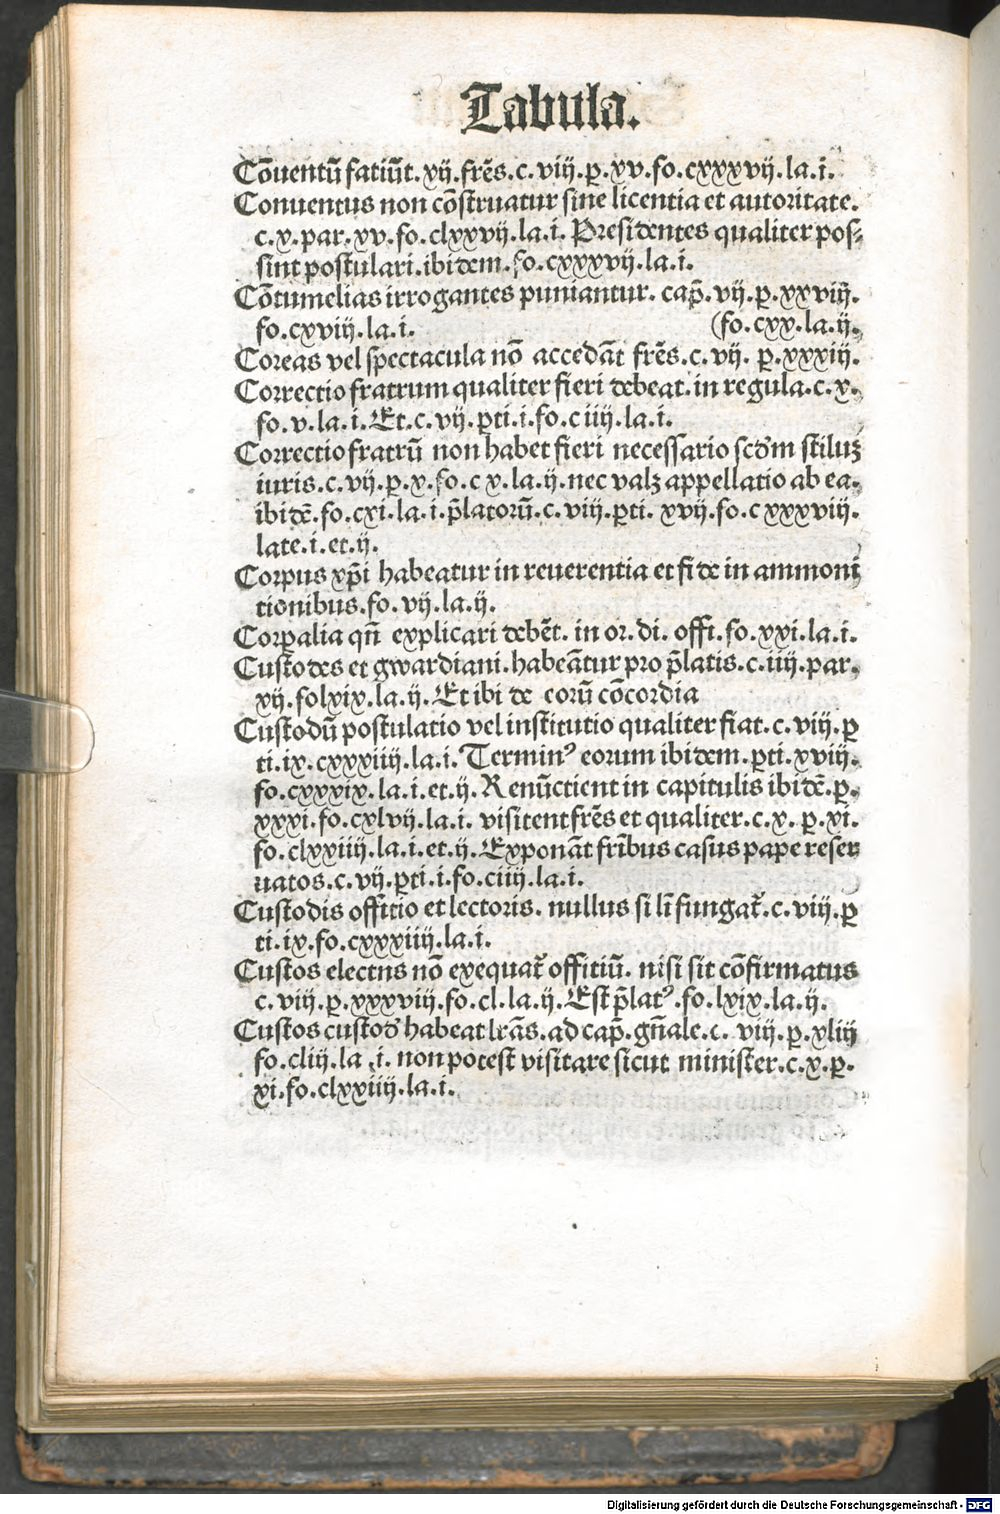 Tabula.
Cōuentū fatiūt.xij.frēs.c.viij.ꝑ.xv.fo.cxxxvij.la.i.
Conuentus non cōstruatur sine licentia et autoritate.
c.x.par.xv.fo.clxxvij.la.i. Presidentes qualiter pos⸗
sint postulari.ibidem.fo.cxxxvij.la.i.
Cōtumelias irrogantes puniantur. cap̄.vij.ꝑ.xxviij.
fo.cxviij.la.i. (fo.cxx.la.ij.
Coreas vel spectacula nō accedāt frēs.c.vij. ꝑ.xxxiij.
Correctio fratrum qualiter fieri debeat.in regula.c.x.
fo.v.la.i.Et.c.vij.ꝑti.i.fo.c iiij.la.i.
Correctio fratrū non habet fieri necessario scd̄m stiluꝫ
iuris.c.vij.ꝑ.x.fo.c x.la.ij.nec valꝫ appellatio ab ea.
ibidē.fo.cxi.la.i.p̄latorū.c.viij.ꝑti. xvij.fo.c xxxviij.
late.i.et.ij.
Corpus xp̄i habeatur in reuerentia et fide in ammoni
tionibus.fo.vij.la.ij.
Corꝑalia qn̄ explicari debēt. in or.di. offi.fo.xxi.la.i.
Custodes et gwardiani.habeātur pro p̄latis.c.iiij.par.
xij.folxix.la.ij.Et ibi de eorū cōcordia
Custodū postulatio vel institutio qualiter fiat.c.viij.ꝑ
ti.ix.cxxxiiij.la.i.Terminꝰ eorum ibidem.ꝑti.xviij.
fo.cxxxix.la.i.et.ij.Renūctient in capitulis ibidē.ꝑ.
xxxi.fo.cxlvij.la.i. visitent frēs et qualiter.c.x. ꝑ.xi.
fo.clxxiiij.la.i.et.ij.Exponāt fr̄ibus casus pape reser
uatos.c.vij.ꝑti.i.fo.ciiij.la.i.
Custodis offitio et lectoris. nullus sil̄i fungat᷑.c.viij.ꝑ
ti.ix.fo.cxxxiiij.la.i.
Custos electus nō exequat᷑ offitiū. nisi sit cōfirmatus
c.viij.ꝑ.xxxviij.fo.cl.la.ij.Est p̄latꝰ.fo.lxix.la.ij.
Custos custod̄ habeat lr̄as.ad cap̄.gn̄ale.c. viij.ꝑ.xliij
fo.cliij.la.i.non potest visitare sicut minister.c.x.ꝑ.
xi.fo.clxxiiij.la.i.
Digitalisierung gefördert durch die Deutsche Forschungsgemeinschaft - DFG